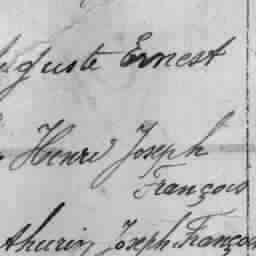 Auguste Ernest
Henri Joseph
François
athurin Joseph François